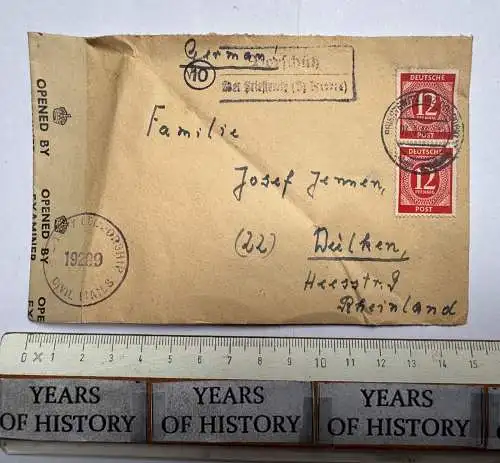 German
10
über Priestewitz
Familie
Josef Jennen,
(22) Dülken,
Heesstr. 9
Rheinland
DEUTSCHE
12
PFENNIG
POST
DEUTSCHE
12
PFENNIG
POST
OPENED BY
OPENED BY
EXAMINER
OPENED BY
CENSORSHIP
19209
CIVIL MAILS
0 1 2 3 4 5 6 7 8 9 10 11 12 13 14 15
YEARS OF HISTORY
YEARS OF HISTORY
YEARS OF HISTORY